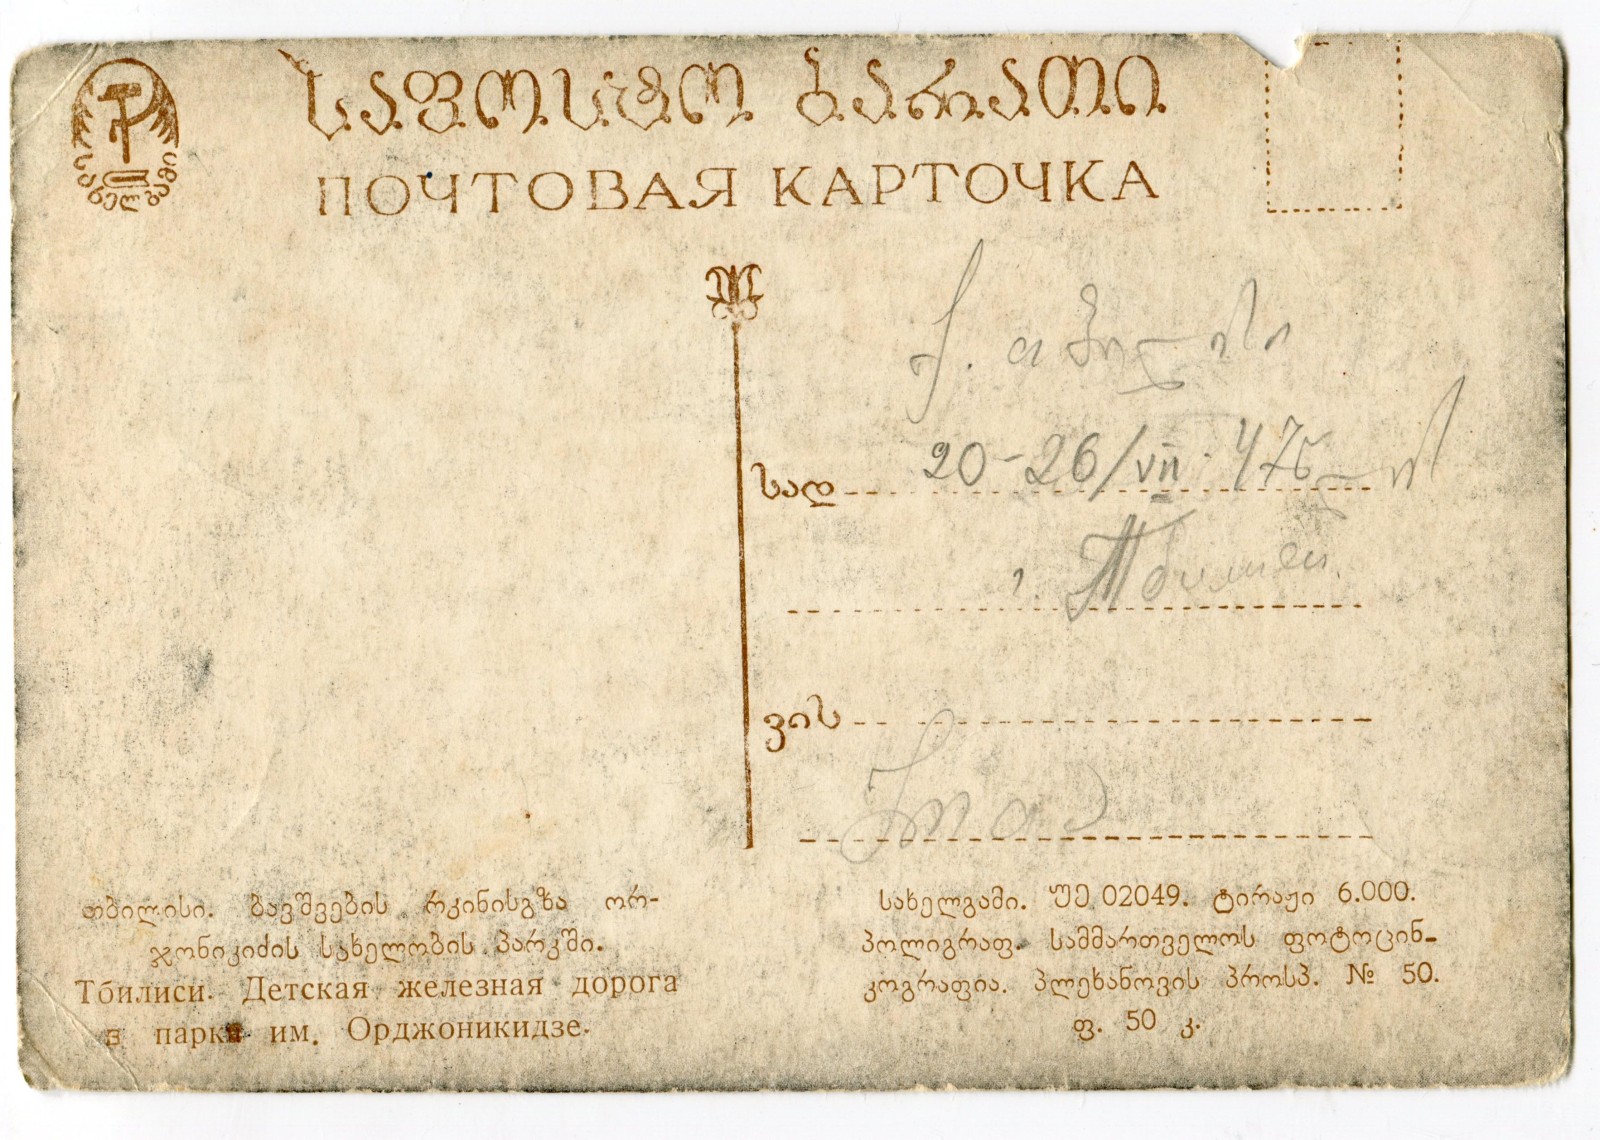 საფოსტო ბარათი
ПОЧТОВАЯ КАРТОЧКА
სახელგამი
ქ. თბილისი
სად 20-26/VII 47 წელს
г. Тбилиси
ვის
თბილისი. ბავშვების რკინისგზა ორ-
ჯონიკიძის სახელობის პარკში.
Тбилиси. Детская железная дорога
в парке им. Орджоникидзе.
სახელგამი. უე 02049. ტირაჟი 6.000.
პოლიგრაფ. სამმართველოს ფოტოცინ-
კოგრაფია. პლეხანოვის პროსპ. № 50.
ფ. 50 კ.